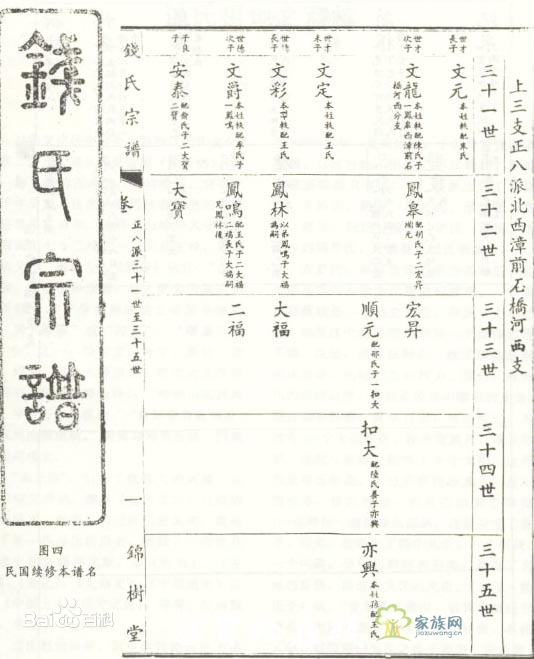 上三支正八派北西漳前石橋河西支
三十一世
三十二世
三十三世
三十四世
三十五世
世才
長子
文元
本姓
配朱氏
世才
次子
文龍
橋河西分支
鳳皋
宏昇
順元
配邵氏子一扣大
扣大
配陸氏養子亦興
亦興
配王氏
世才
三子
文定
配王氏
世德
長子
文彩
配王氏
鳳林
以鳳鳴子大福
爲嗣
大福
世德
次子
文爵
配李氏子
一鳳鳴
鳳鳴
配王氏子二大福
二福長子大福嗣
兄鳳林後
二福
安泰
配俞氏子二大寶
二寶
大寶
錢氏宗譜
卷
正八派三十一世至三十五世
一
錦樹堂
錢氏宗譜
图四
民国续修本谱名
Bai百科
家族网
jiazuwang.cn